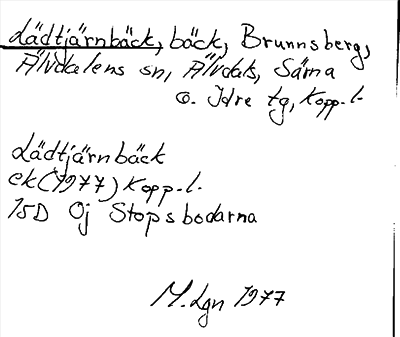 Lädtjärnbäck, bäck, Brunnsberg,
Älvdalens sn, Älvdals, Särna
o. Idre tg, Kopp.l.
Lädtjärnbäck
ek (1977) Kopp.l.
15D 0j Stopsbodarna
M.Lgn 1977